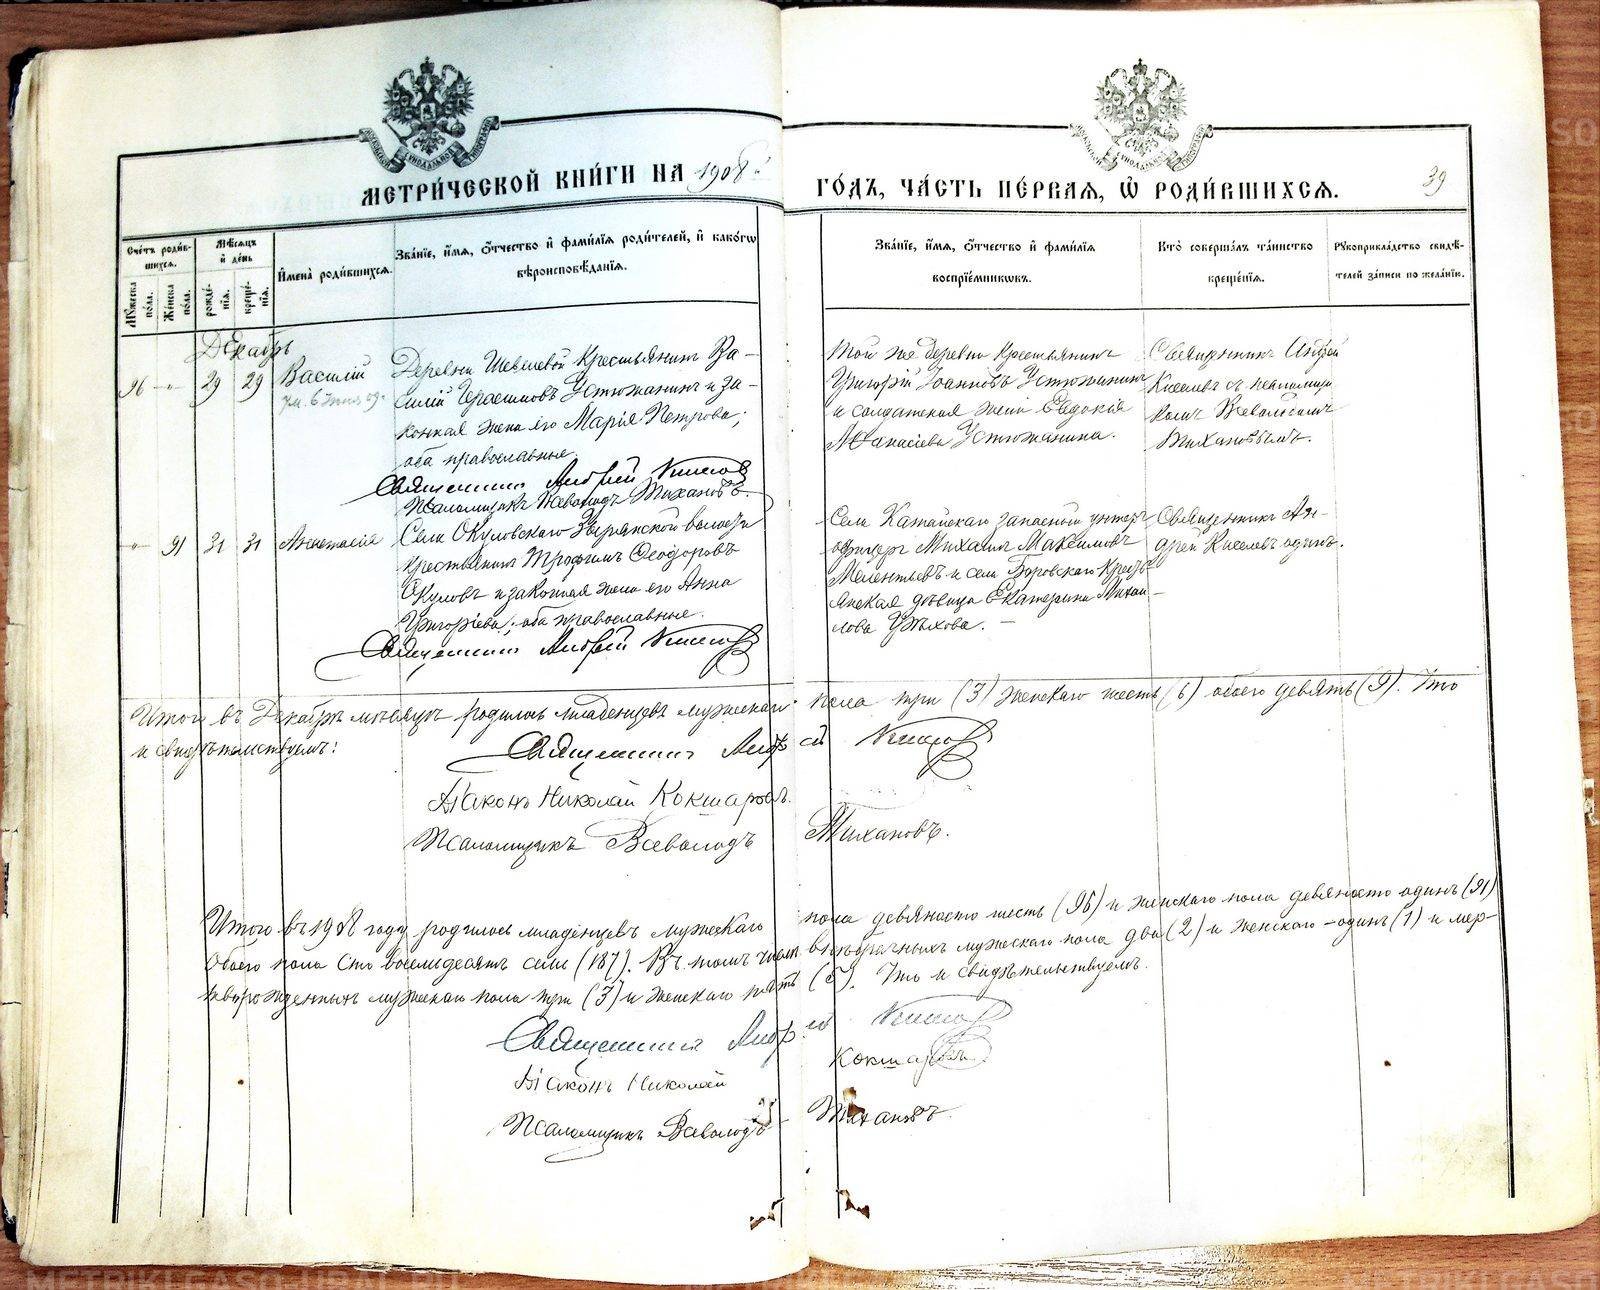 МЕТРИ́ЧЕСКОЙ КНИ́ГИ НА 1908
ГО́ДЪ, ЧА́СТЬ ПЕ́РВАЯ, Ѽ РОДИ́ВШИХСЯ.
39
Сче́тъ роди́вшихся.
Му́жеска по́ла.
Же́нска по́ла.
Мѣ́сяцъ и́ де́нь
рожде́нїя.
креще́нїя.
И҆мена̀ роди́вшихся.
Зва́нїе, и҆́мя, ѻ҆́тчество и҆ фами́лїя роди́телей, и҆ како́гѡ
вѣроисповѣ́данїя.
Зва́нїе, и҆́мя, ѻ҆́тчество и҆ фами́лїя
воспрїе́мникѡвъ.
Кто̀ соверша́лъ та́инство
креще́нїя.
Рꙋкоприкла́дство свидѣ́-
телей за́писи по жела́нїю.
Декабрь
96 - „ - 29 29 Василій
Деревни Шевелевой крестьянинъ Ва-
силій Герасимовъ Устюжанинъ и за-
конная жена его Марія Петрова;
оба православные.
Священникъ Андрей Киселевъ
Псаломщикъ Всеволодъ Тихановъ.
Той же деревни крестьянинъ
Григорій Іоанновъ Устюжанинъ
и солдатская жена Евдокія
Аѳанасіева Устюжанина.
Священникъ Андрей
Киселевъ съ псаломщи-
комъ Всеволодомъ
Тихановымъ.
- „ - 91 31 31 Анастасія
Села Окуловскаго Зырянской волости
крестьянинъ Трофимъ Ѳеодоровъ
Окуловъ и законная жена его Анна
Григоріева; оба православные.
Священникъ Андрей Киселевъ
Села Катайскаго запасный унтеръ
офицеръ Михаилъ Максимовъ
Мелентьевъ и села Боровскаго кресть-
янская дѣвица Екатерина Михаи-
лова
Священникъ Ан-
дрей Киселевъ одинъ.
Итого въ Декабрѣ мѣсяцѣ родилось младенцевъ мужескаго пола три (3) женскаго шесть (6) обоего девять (9). Что
и свидѣтельствуемъ:
Священникъ Андрей Киселевъ
Діаконъ Николай Кокшаровъ.
Псаломщикъ Всеволодъ Тихановъ.
Итого въ 1908 году родилось младенцевъ мужескаго пола девяносто шесть (96) и женскаго пола девяносто одинъ (91)
обоего пола сто восемьдесятъ семь (187). Въ томъ числѣ внѣбрачныхъ мужескаго пола два (2) и женскаго - одинъ (1) и мер-
творожденныхъ мужескаго пола три (3) и женскаго пять (5). Что и свидѣтельствуемъ.
Священникъ Андрей Киселевъ
Діаконъ Николай Кокшаровъ
Псаломщикъ Всеволодъ Тихановъ.
METRIKI.GASO-URAL.RU